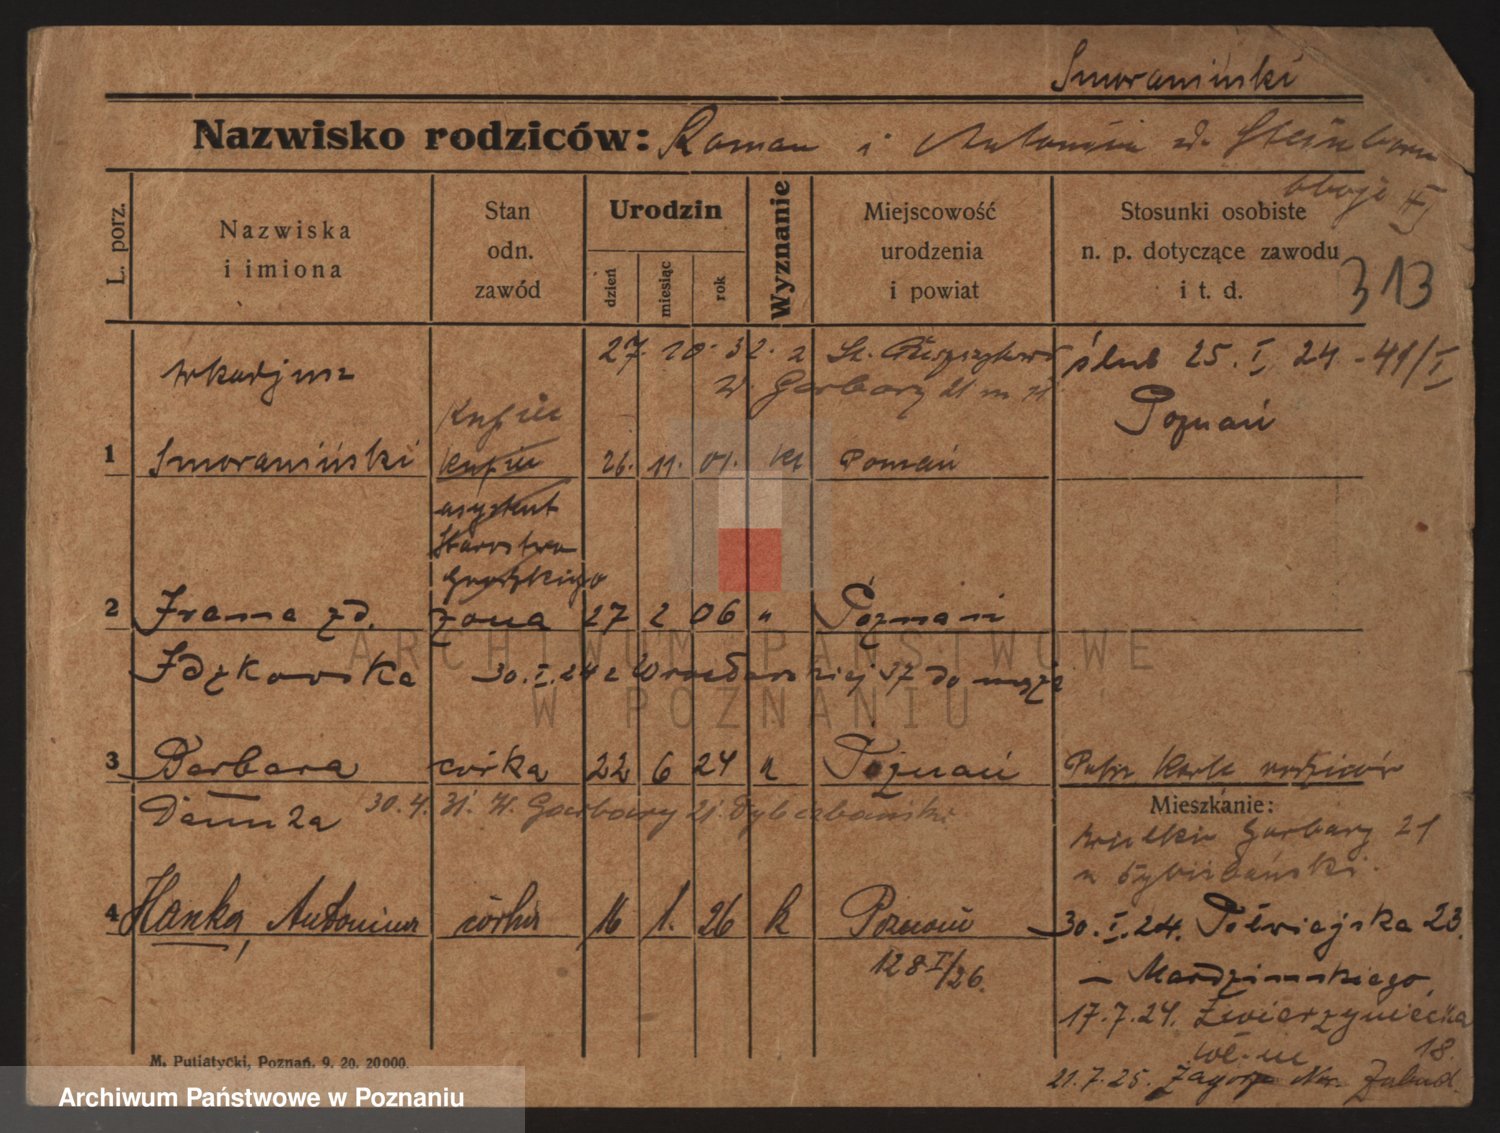 Smoraniński
Nazwisko rodziców: Roman i Antonina zd. Steinborn
oboje
313
L. porz.
Nazwiska
i imiona
Stan
odn.
zawód
Urodzin
dzień
miesiąc
rok
Wyznanie
Miejscowość
urodzenia
i powiat
Stosunki osobiste
n. p. dotyczące zawodu
i t. d.
27. 10. 32. z St.
W. Garbary 21 m
Arkadjusz
ślub 25. I. 24 - 41/I
Poznań
Kupiec
1 Smoraniński Kupiec 26. 11. 01. kt Poznań
asystent
Starostwa
Grodzkiego
2 Irena zd. żona 27 2 06 " Poznań
Idzkowska 30. I. 24 z Wrocławskiej 37 do męża
3 Barbara córka 22 6 24 " Poznań Patrz Karta rodziców
Danuta 30. 4. 31. W. Garbary 21.
Mieszkanie:
Wielkie Garbary 21
4 Hanka, Antonina córka 16 1. 26 k Poznań
128 I/26.
30. I. 24. Półwiejska 23.
17. 7. 24. Zwierzyniecka
18.
21. 7. 25. Zagórze
M. Putiatycki, Poznań. 9. 20. 20000.
ARCHIWUM PAŃSTWOWE
W POZNANIU
Archiwum Państwowe w Poznaniu